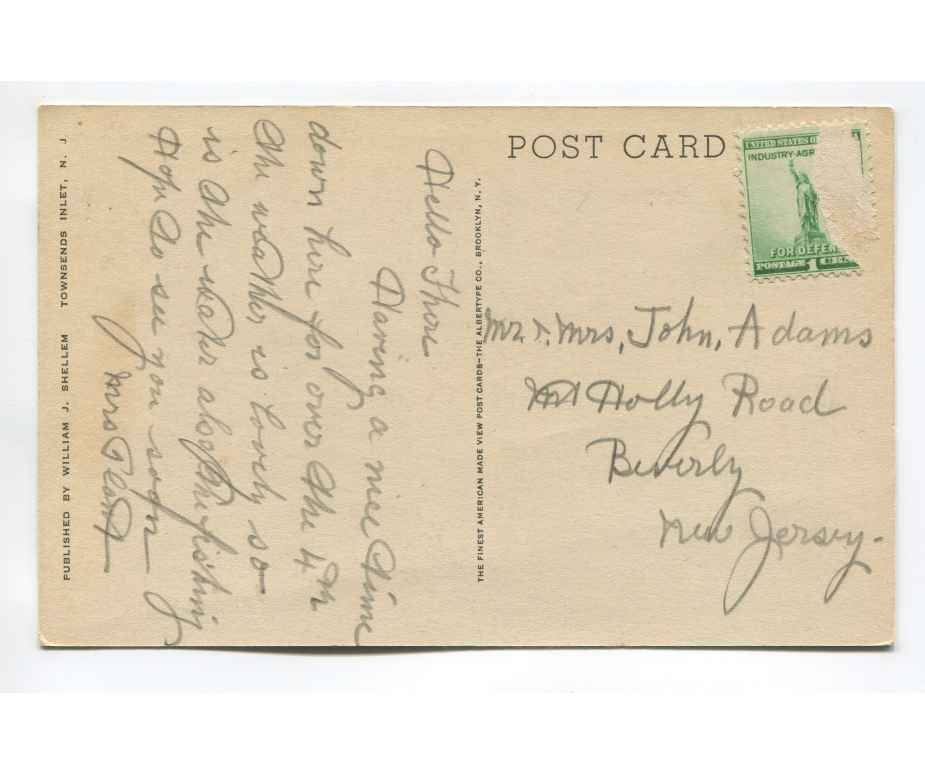 POST CARD
UNITED STATES O
INDUSTRY-AGR
FOR DEFEN
POSTAGE 1 CEN
Hello There
Having a nice time
down here for over the 4th
the weather is lovely so
is the water also the fishing
Hope to see you soon
Mrs
Mr & Mrs, John, Adams
Mt Holly Road
Beverly
New Jersey.
THE FINEST AMERICAN MADE VIEW POST CARDS—THE ALBERTYPE CO., BROOKLYN, N. Y.
PUBLISHED BY WILLIAM J. SHELLEM TOWNSENDS INLET, N. J.